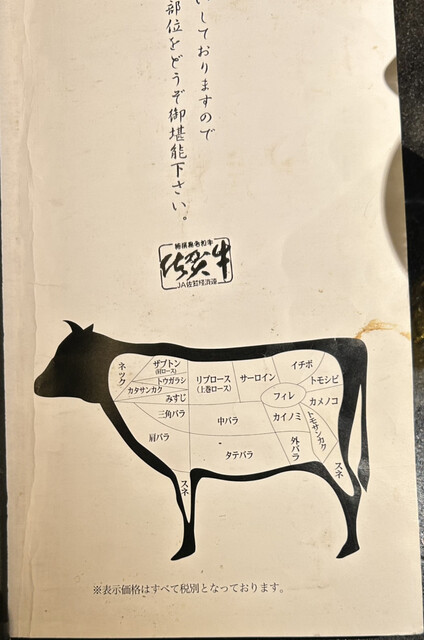 しておりますので
部位をどうぞ御堪能下さい。
特撰黒毛和牛
佐賀牛
JA佐賀経済連
ネック
ザブトン
(肩ロース)
トウガラシ
カタサンカク
みすじ
リブロース
(上巻ロース)
サーロイン
イチボ
トモシビ
フィレ
カメノコ
三角バラ
中バラ
カイノミ
トモサンカク
肩バラ
タテバラ
外バラ
スネ
スネ
※表示価格はすべて税別となっております。